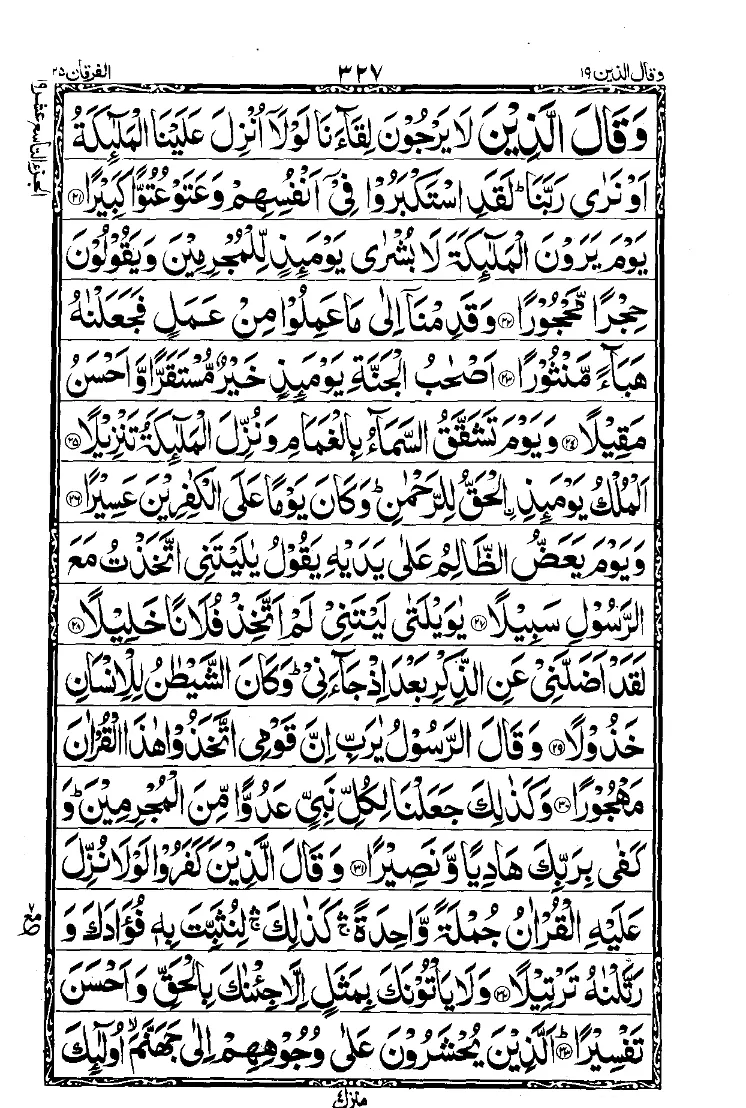 وقال الذين ١٩
٣٢٧
الفرقان ٢٥
الجزء التاسع عشر
وَقَالَ الَّذِيْنَ لَا يَرْجُوْنَ لِقَآءَنَا لَوْلَآ اُنْزِلَ عَلَيْنَا الْمَلٰٓئِكَةُ
اَوْ نَرٰى رَبَّنَا ؕ لَقَدِ اسْتَكْبَرُوْا فِىْٓ اَنْفُسِهِمْ وَعَتَوْ عُتُوًّا كَبِيْرًا ﴿۲۱﴾
يَوْمَ يَرَوْنَ الْمَلٰٓئِكَةَ لَا بُشْرٰى يَوْمَئِذٍ لِّلْمُجْرِمِيْنَ وَيَقُوْلُوْنَ
حِجْرًا مَّحْجُوْرًا ﴿۲۲﴾ وَقَدِمْنَآ اِلٰى مَا عَمِلُوْا مِنْ عَمَلٍ فَجَعَلْنٰهُ
هَبَآءً مَّنْثُوْرًا ﴿۲۳﴾ اَصْحٰبُ الْجَنَّةِ يَوْمَئِذٍ خَيْرٌ مُّسْتَقَرًّا وَّاَحْسَنُ
مَقِيْلًا ﴿۲۴﴾ وَيَوْمَ تَشَقَّقُ السَّمَآءُ بِالْغَمَامِ وَنُزِّلَ الْمَلٰٓئِكَةُ تَنْزِيْلًا ﴿۲۵﴾
اَلْمُلْكُ يَوْمَئِذِ ۨالْحَقُّ لِلرَّحْمٰنِ ؕ وَكَانَ يَوْمًا عَلَى الْكٰفِرِيْنَ عَسِيْرًا ﴿۲۶﴾
وَيَوْمَ يَعَضُّ الظَّالِمُ عَلٰى يَدَيْهِ يَقُوْلُ يٰلَيْتَنِى اتَّخَذْتُ مَعَ
الرَّسُوْلِ سَبِيْلًا ﴿۲۷﴾ يٰوَيْلَتٰى لَيْتَنِىْ لَمْ اَتَّخِذْ فُلَانًا خَلِيْلًا ﴿۲۸﴾
لَقَدْ اَضَلَّنِىْ عَنِ الذِّكْرِ بَعْدَ اِذْ جَآءَنِىْ ؕ وَكَانَ الشَّيْطٰنُ لِلْاِنْسَانِ
خَذُوْلًا ﴿۲۹﴾ وَقَالَ الرَّسُوْلُ يٰرَبِّ اِنَّ قَوْمِى اتَّخَذُوْا هٰذَا الْقُرْاٰنَ
مَهْجُوْرًا ﴿۳۰﴾ وَكَذٰلِكَ جَعَلْنَا لِكُلِّ نَبِىٍّ عَدُوًّا مِّنَ الْمُجْرِمِيْنَ ؕ وَ
كَفٰى بِرَبِّكَ هَادِيًا وَّنَصِيْرًا ﴿۳۱﴾ وَقَالَ الَّذِيْنَ كَفَرُوْا لَوْلَا نُزِّلَ
عَلَيْهِ الْقُرْاٰنُ جُمْلَةً وَّاحِدَةً ۛۚ كَذٰلِكَ ۛۚ لِنُثَبِّتَ بِهٖ فُؤَادَكَ وَ
رَتَّلْنٰهُ تَرْتِيْلًا ﴿۳۲﴾ وَلَا يَاْتُوْنَكَ بِمَثَلٍ اِلَّا جِئْنٰكَ بِالْحَقِّ وَاَحْسَنَ
تَفْسِيْرًا ؕ﴿۳۳﴾ اَلَّذِيْنَ يُحْشَرُوْنَ عَلٰى وُجُوْهِهِمْ اِلٰى جَهَنَّمَ ۙ اُولٰٓئِكَ
مع
منزل